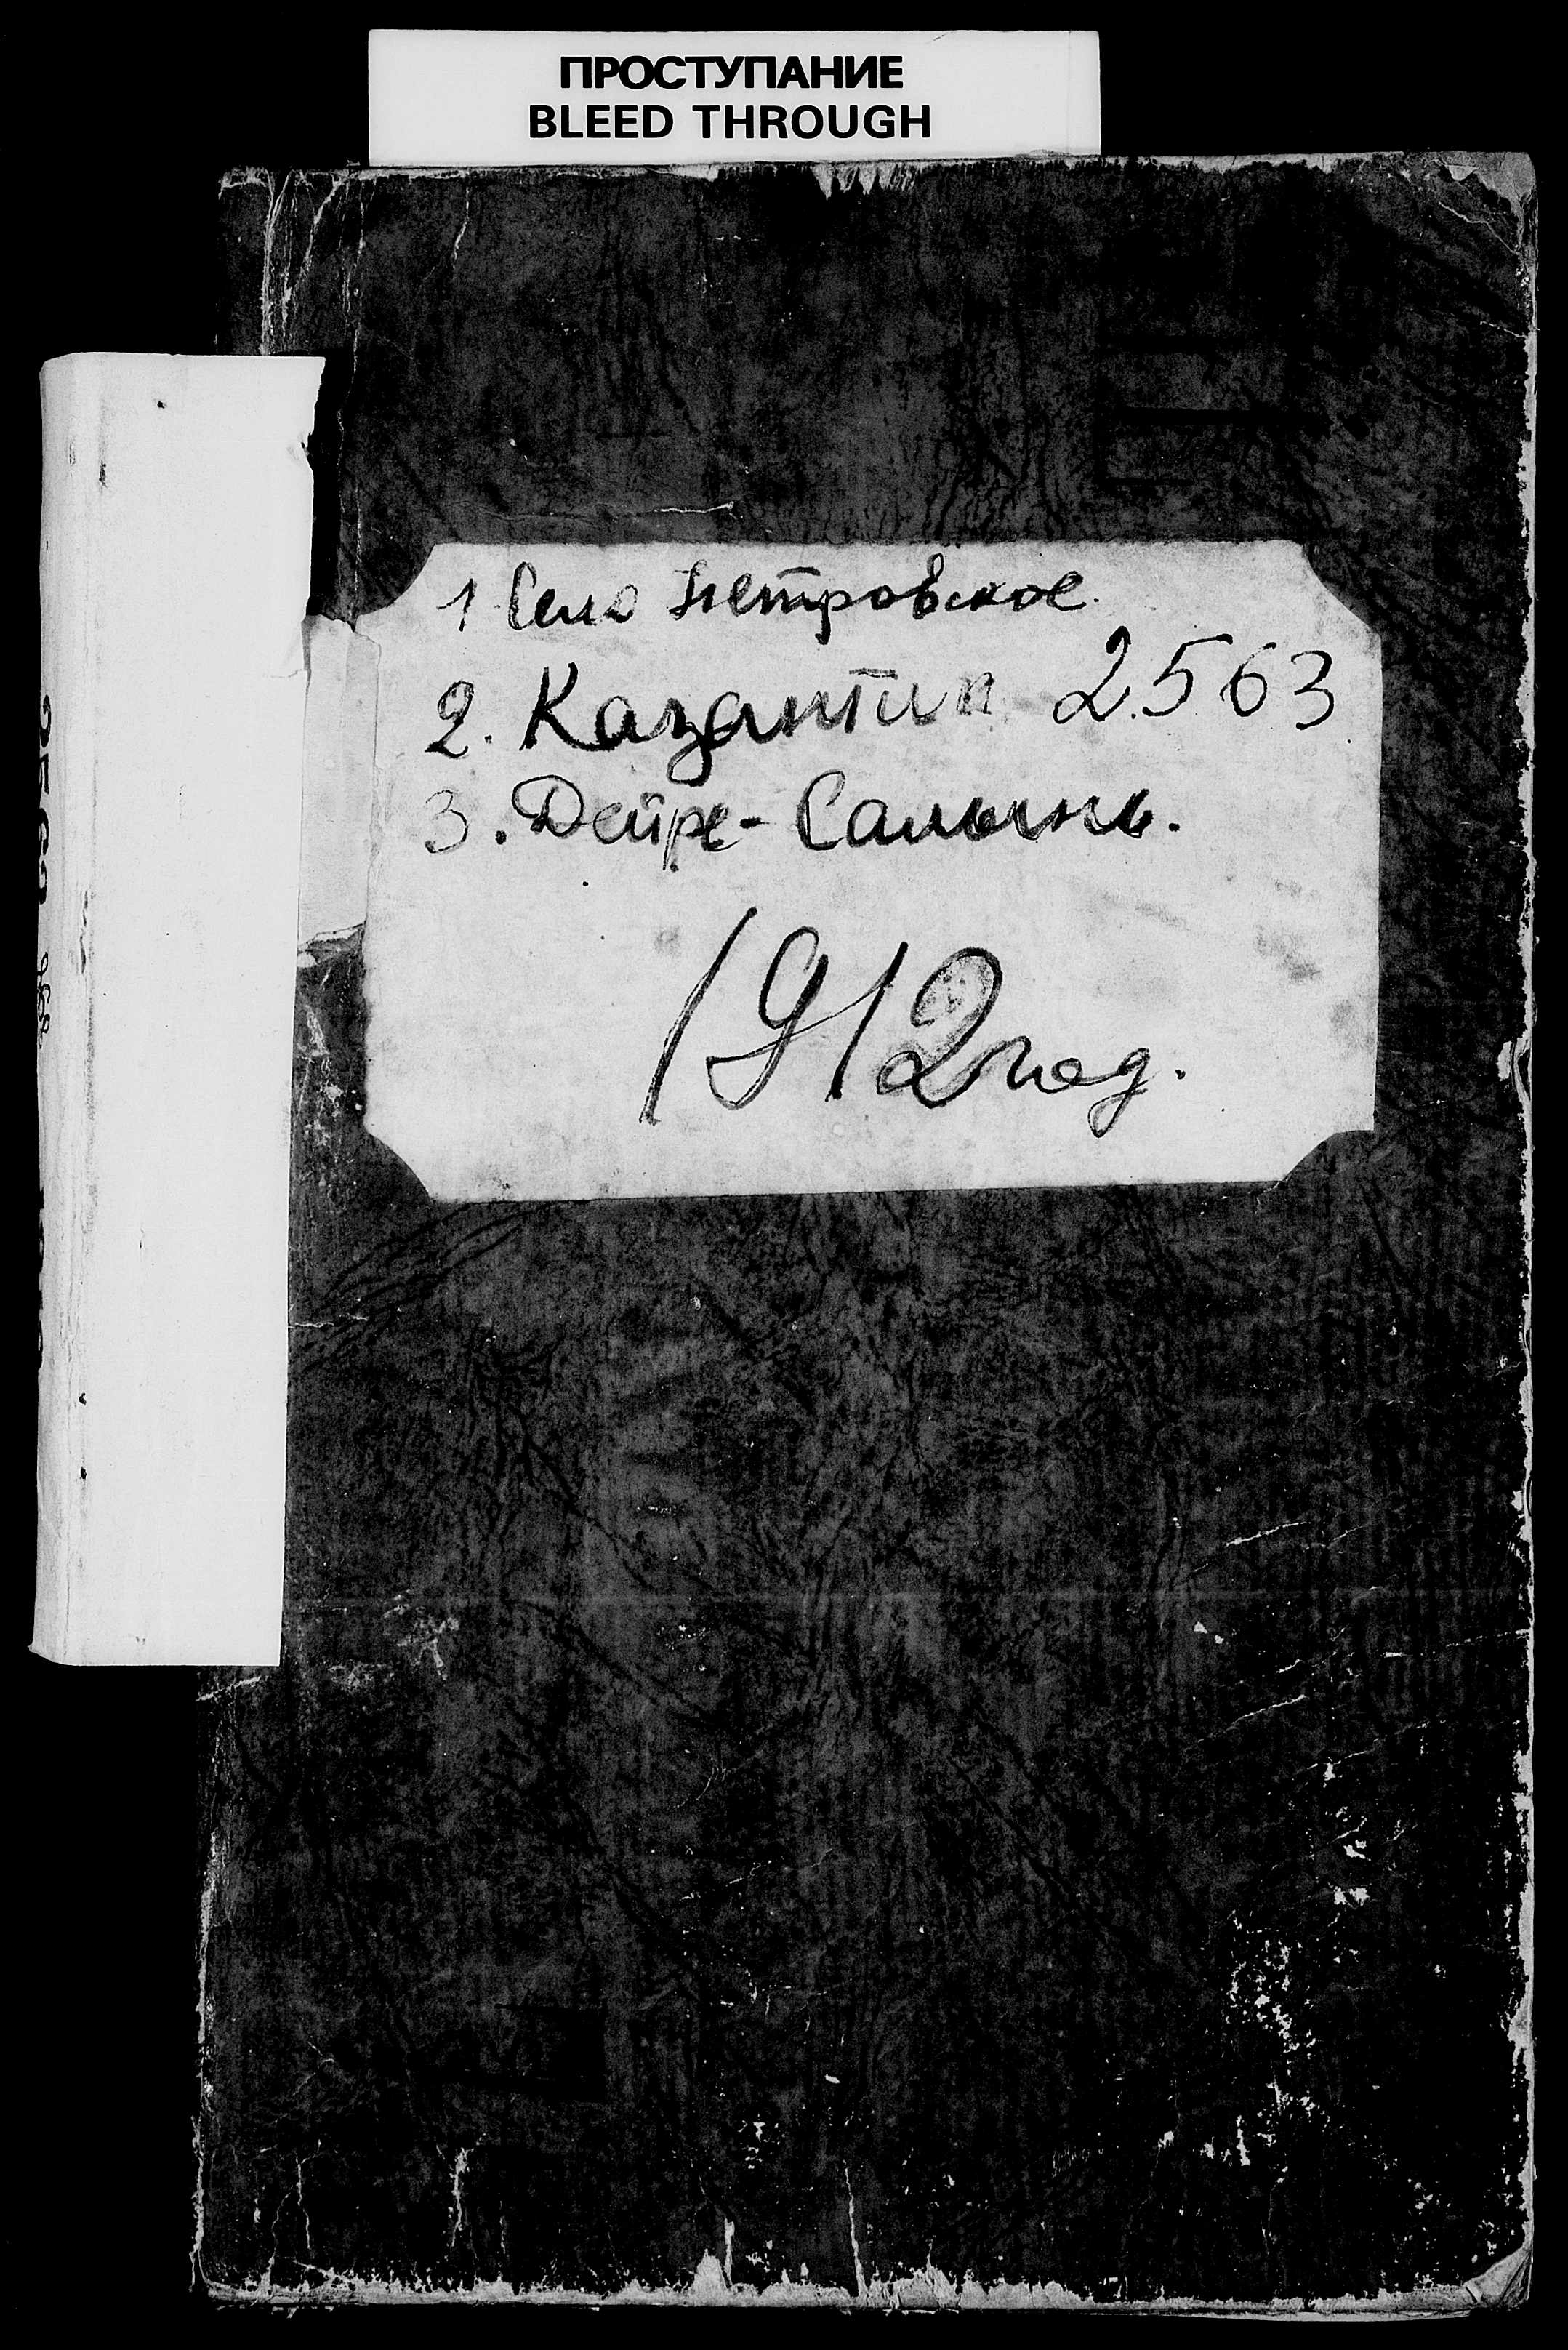 ПРОСТУПАНИЕ
BLEED THROUGH
1. Село Петровское.
2. Казантип 2563
3. Дейре-Салынь.
1912 год.